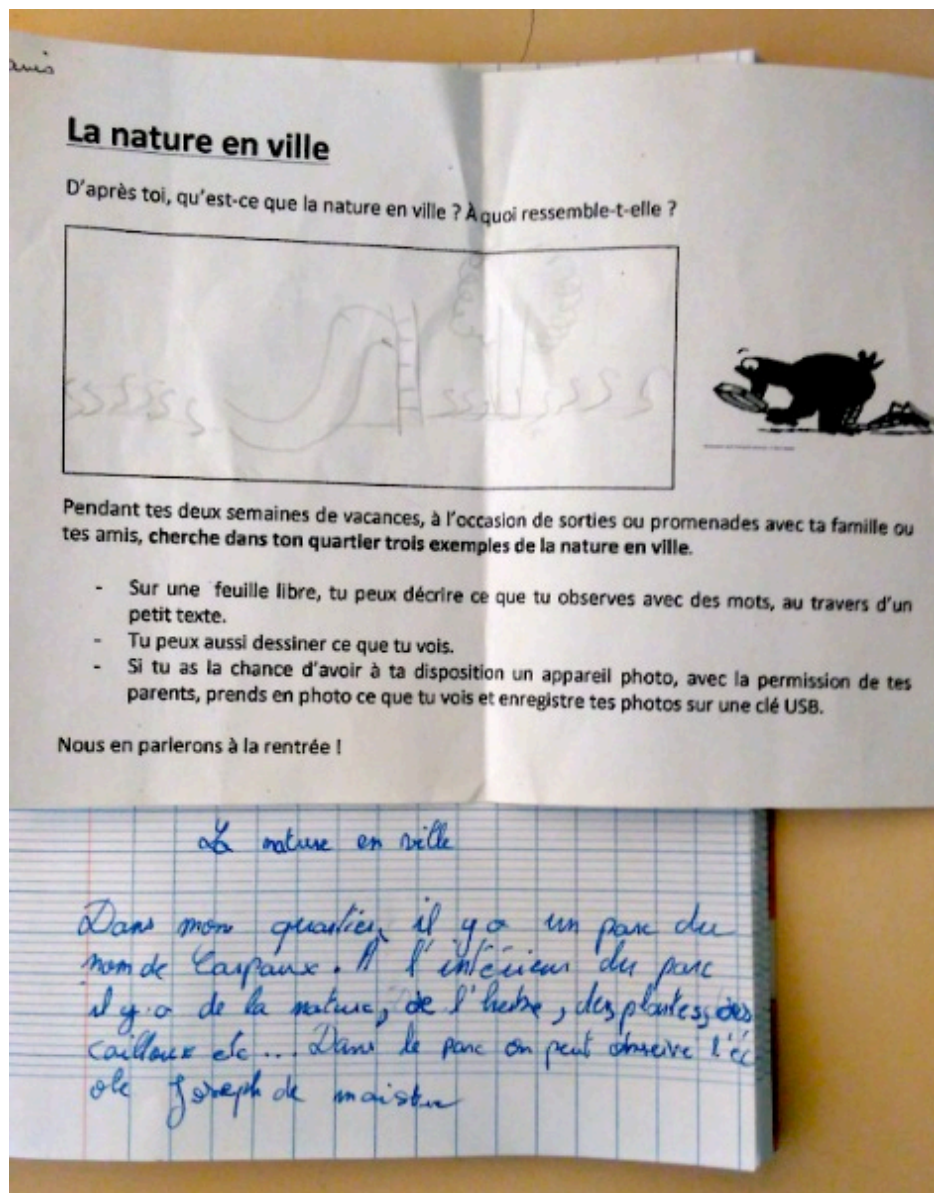 La nature en ville
D'après toi, qu'est-ce que la nature en ville ? À quoi ressemble-t-elle ?
Pendant tes deux semaines de vacances, à l'occasion de sorties ou promenades avec ta famille ou
tes amis, cherche dans ton quartier trois exemples de la nature en ville.
- Sur une feuille libre, tu peux décrire ce que tu observes avec des mots, au travers d'un
petit texte.
- Tu peux aussi dessiner ce que tu vois.
- Si tu as la chance d'avoir à ta disposition un appareil photo, avec la permission de tes
parents, prends en photo ce que tu vois et enregistre tes photos sur une clé USB.
Nous en parlerons à la rentrée !
La nature en ville
Dans mon quartier, il y a un parc du
nom de Carpaux. A l'intérieur du parc
il y a de la nature, de l'herbe, des plantes, des
cailloux etc... Dans le parc on peut observe l'éc
ole Joseph de maistre